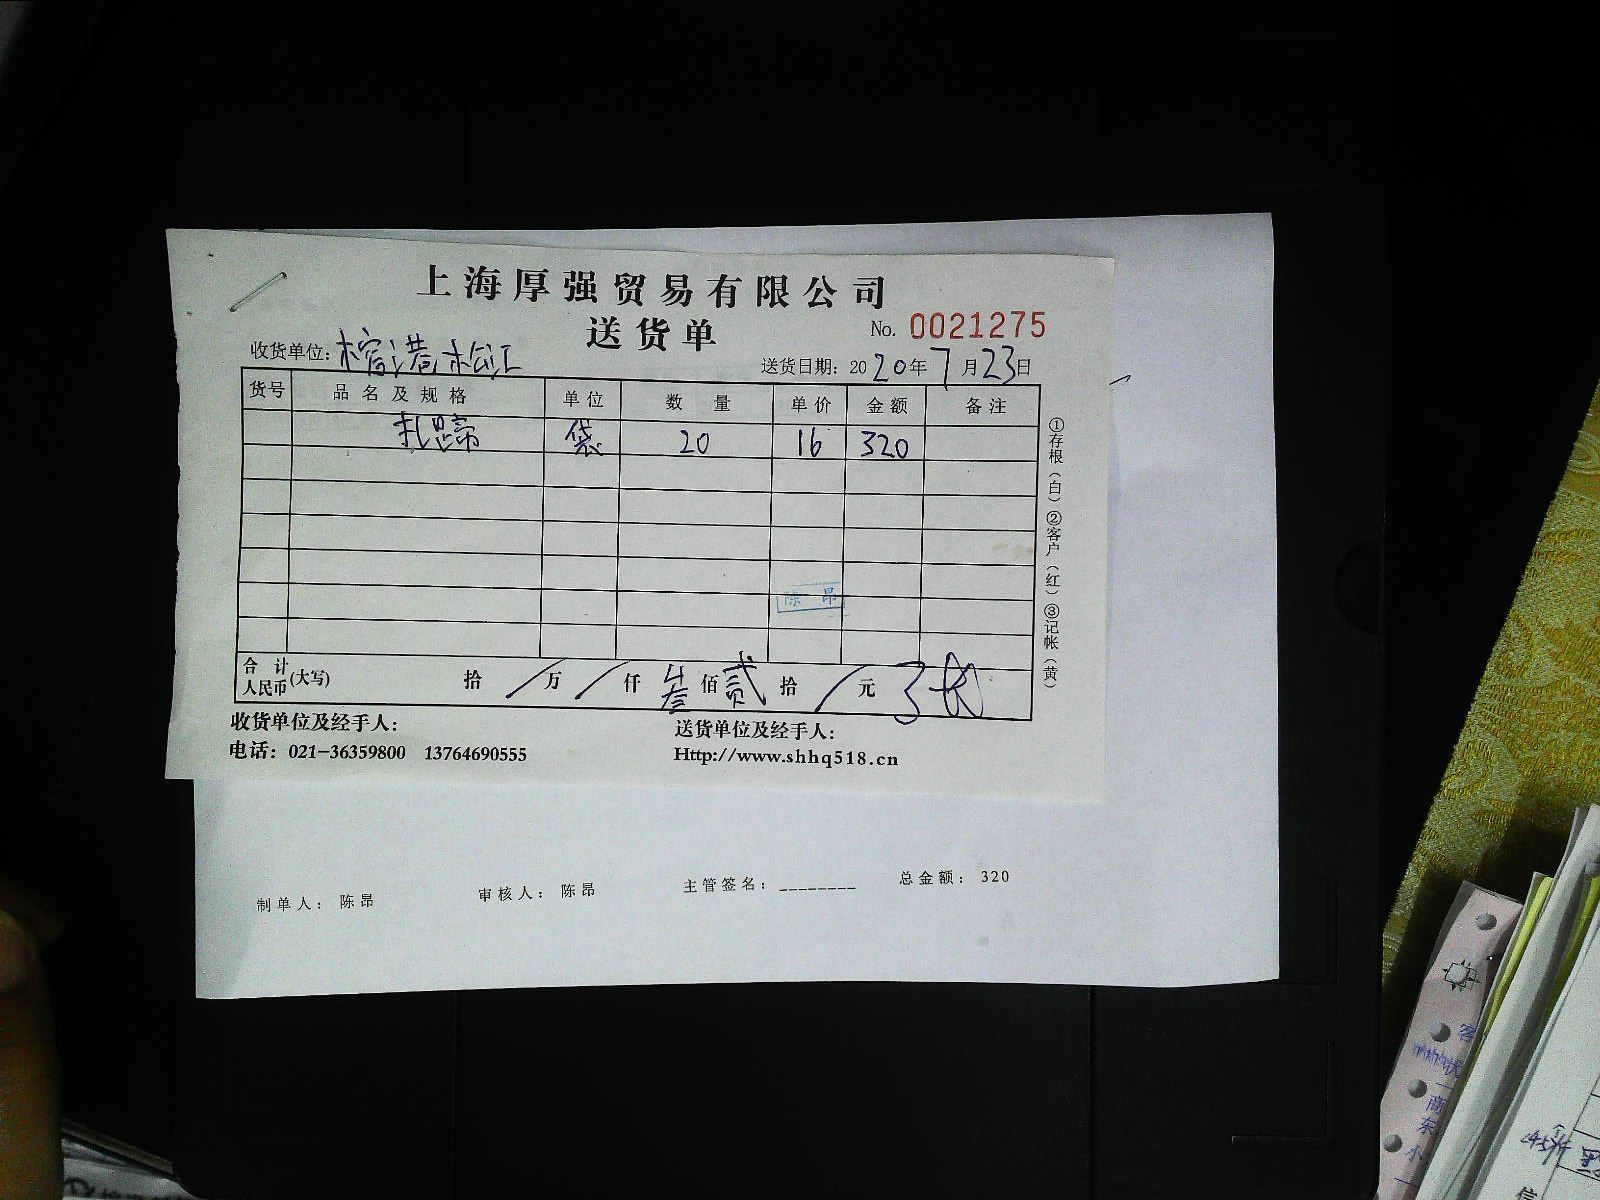 上海厚强贸易有限公司
送货单
No. 0021275
收货单位: 榕港松江
送货日期: 2020年7月23日
货号 品名及规格 单位 数量 单价 金额 备注
扎啤 袋 20 16 320
陈昂
合计人民币(大写) 拾 / 万 / 仟 叁 佰 贰 拾 / 元
收货单位及经手人:
送货单位及经手人:
电话: 021-36359800 13764690555
Http://www.shhq518.cn
①存根(白)②客户(红)③记帐(黄)
制单人: 陈昂
审核人: 陈昂
主管签名: ________
总金额: 320
客
商
东
小